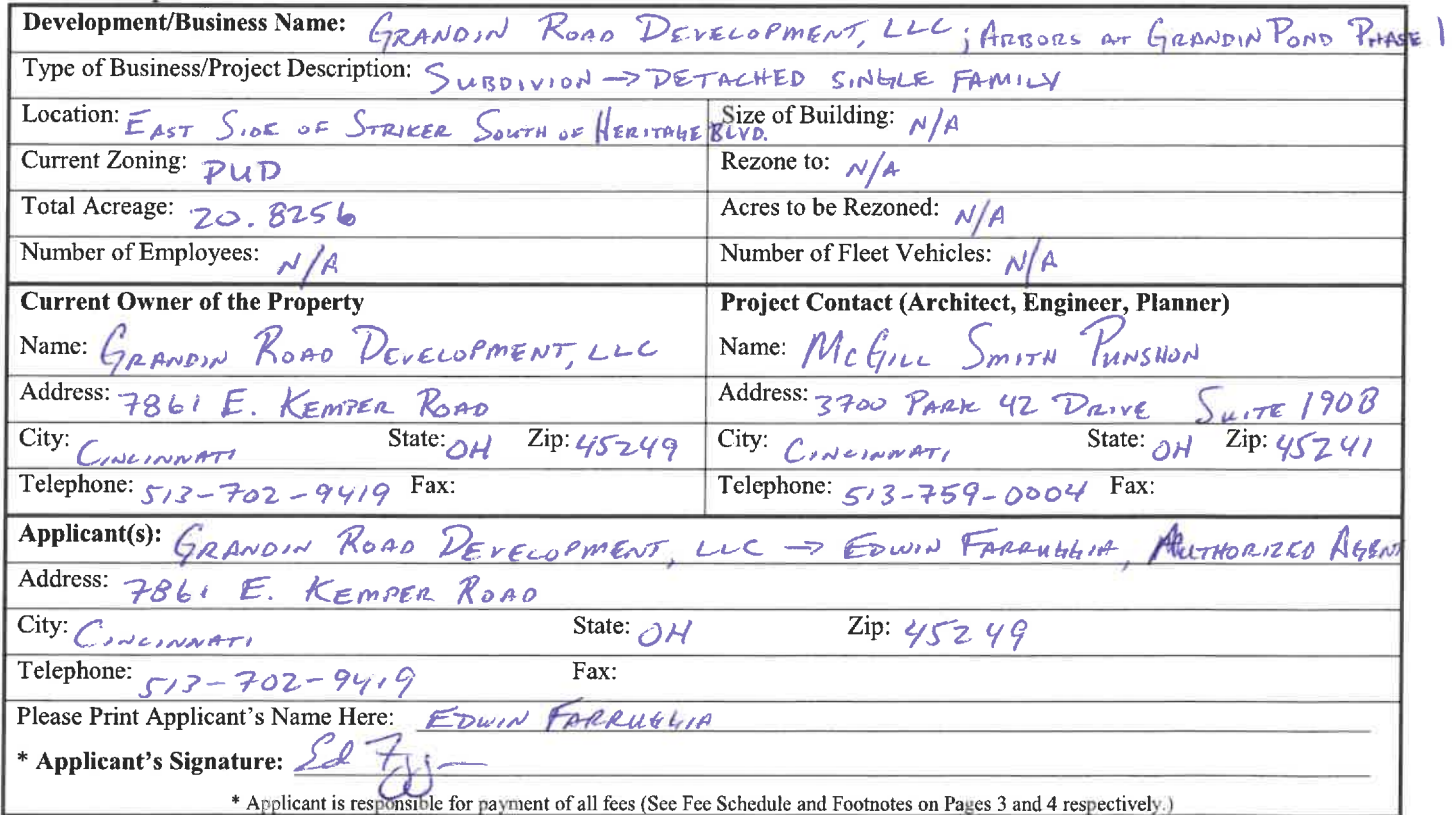 Development/Business Name: GRANDIN ROAD DEVELOPMENT, LLC; ARBORS AT GRANDIN POND PHASE 1
Type of Business/Project Description: SUBDIVION -> DETACHED SINGLE FAMILY
Location: EAST SIDE OF STRIKER SOUTH OF HERITAGE BLVD. Size of Building: N/A
Current Zoning: PUD Rezone to: N/A
Total Acreage: 20.8256 Acres to be Rezoned: N/A
Number of Employees: N/A Number of Fleet Vehicles: N/A
Current Owner of the Property
Name: GRANDIN ROAD DEVELOPMENT, LLC
Address: 7861 E. KEMPER ROAD
City: CINCINNATI State: OH Zip: 45249
Telephone: 513-702-9419 Fax:
Project Contact (Architect, Engineer, Planner)
Name: MCGILL SMITH PUNSHON
Address: 3700 PARK 42 DRIVE SUITE 190B
City: CINCINNATI State: OH Zip: 45241
Telephone: 513-759-0004 Fax:
Applicant(s): GRANDIN ROAD DEVELOPMENT, LLC -> EDWIN FARRUGGIA, AUTHORIZED AGENT
Address: 7861 E. KEMPER ROAD
City: CINCINNATI State: OH Zip: 45249
Telephone: 513-702-9419 Fax:
Please Print Applicant's Name Here: EDWIN FARRUGGIA
* Applicant's Signature:
* Applicant is responsible for payment of all fees (See Fee Schedule and Footnotes on Pages 3 and 4 respectively.)